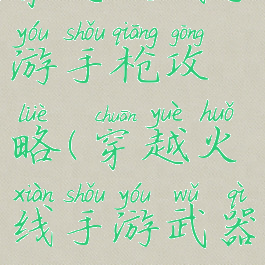 yóu shǒu qiāng gòng
游手枪攻
lüè chuān yuè huǒ
略(穿越火
xiàn shǒu yóu wǔ qì
线手游武器